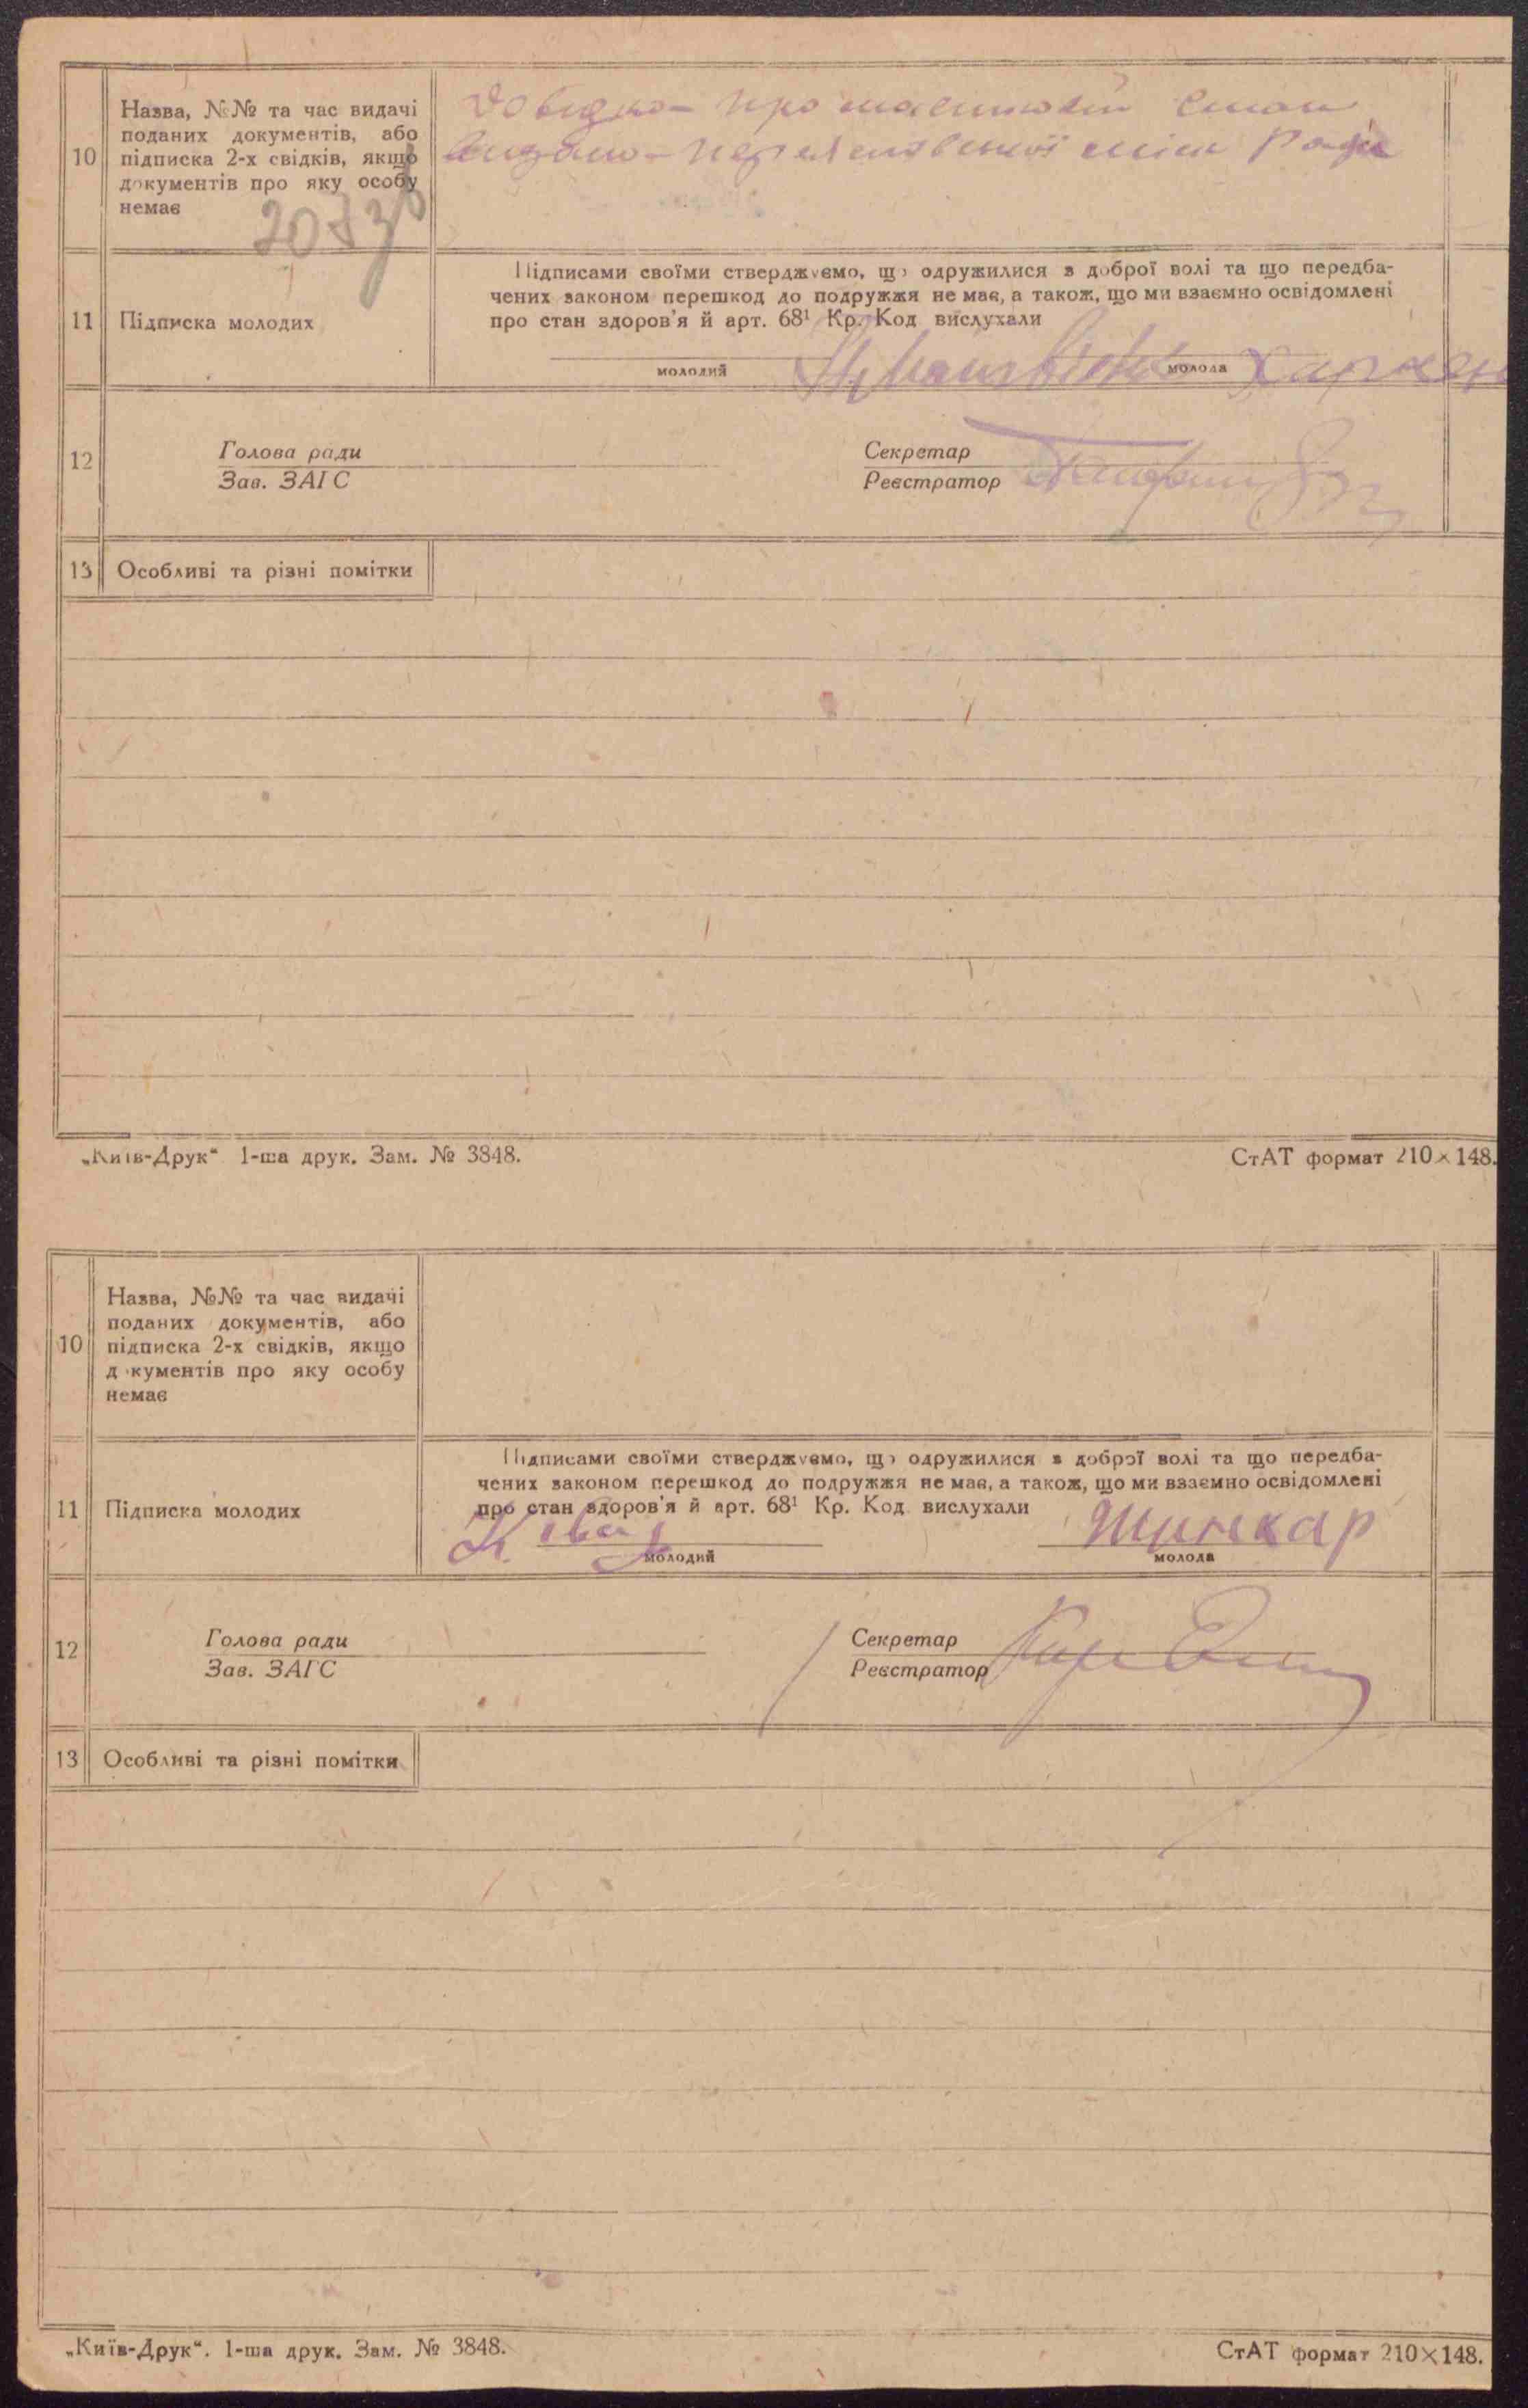 10
Назва, №№ та час видачі
поданих документів, або
підписка 2-х свідків, якщо
документів про яку особу
немає
Довідка про
Ради
11
Підписка молодих
Підписами своїми стверджуємо, що одружилися з доброї волі та що передба-
чених законом перешкод до подружжя не має, а також, що ми взаємно освідомлені
про стан здоров'я й арт. 68¹ Кр. Код вислухали
молодий
молода
12
Голова ради
Зав. ЗАГС
Секретар
Реєстратор
13
Особливі та різні помітки
„Київ-Друк“ 1-ша друк. Зам. № 3848.
СтАТ формат 210×148.
10
Назва, №№ та час видачі
поданих документів, або
підписка 2-х свідків, якщо
д кументів про яку особу
немає
11
Підписка молодих
Підписами своїми стверджуємо, що одружилися з доброї волі та що передба-
чених законом перешкод до подружжя не має, а також, що ми взаємно освідомлені
про стан здоров'я й арт. 68¹ Кр. Код вислухали
Шинкар
молодий
молода
12
Голова ради
Зав. ЗАГС
Секретар
Реєстратор
13
Особливі та різні помітки
„Київ-Друк“. 1-ша друк. Зам. № 3848.
СтАТ формат 210×148.